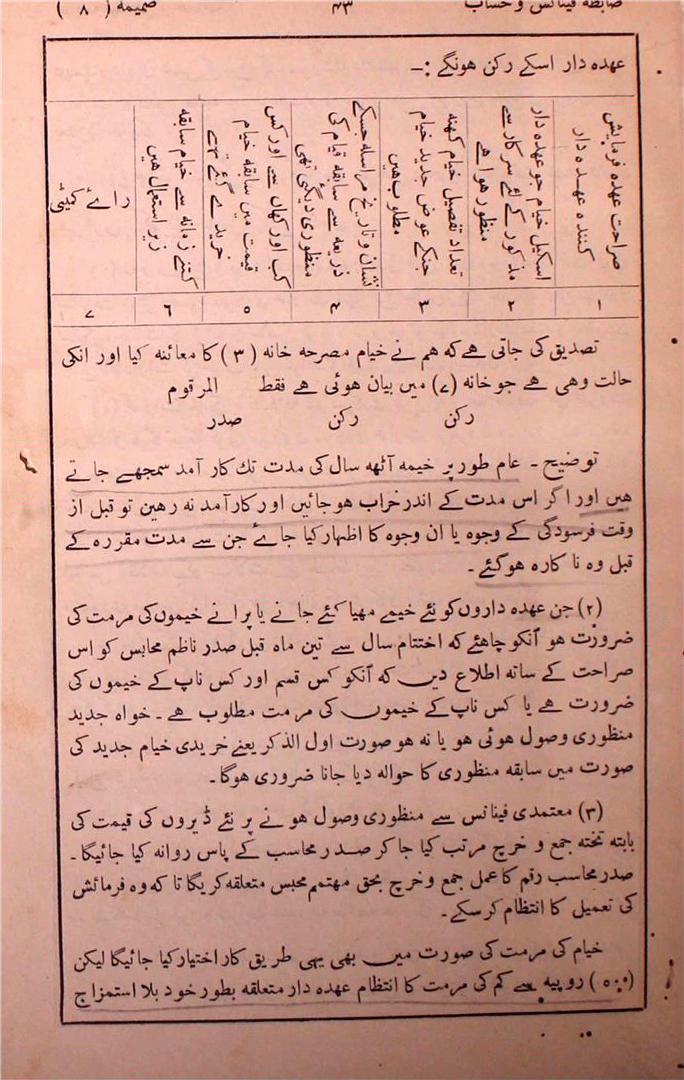 ضابطہ فینانس و حساب ۴۳ ضمیمہ ( ۸ )
عہدہ دار اسکے رکن ہونگے :-
صراحت عہدہ فرمایش
کنندہ عہدہ دار
اسکیل خیام جو عہدہ دار
مذکور کے لئے سرکار سے
منظور ہوا ہے
تعداد تفصیل خیام کہنہ
جنکے عوض جدید خیام
مطلوب ہیں
نشان و تاریخ مراسلہ جسکے
ذریعہ سے سابقہ خیام کی
منظوری دیگئی تھی
کب اور کہاں سے اور کس
قیمت میں سابقہ خیام
خریدے گئے تھے
کتنے زمانہ سے خیام سابقہ
زیر استعمال ہیں
رائے کمیٹی
۱ ۲ ۳ ۴ ۵ ۶ ۷
تصدیق کی جاتی ہے کہ ہم نے خیام مصرحہ خانہ ( ۳ ) کا معائنہ کیا اور انکی
حالت وہی ہے جو خانہ (۷) میں بیان ہوئی ہے فقط المرقوم
رکن رکن صدر
توضیح - عام طور پر خیمہ آٹھہ سال کی مدت تك کار آمد سمجھے جاتے
ہیں اور اگر اس مدت کے اندر خراب ہو جائیں اور کارآمد نہ رہیں تو قبل از
وقت فرسودگی کے وجوہ یا ان وجوہ کا اظہار کیا جائے جن سے مدت مقررہ کے
قبل وہ ناکارہ ہوگئے -
(۲) جن عہدہ داروں کو نئے خیمے مہیا کئے جانے یا پرانے خیموں کی مرمت کی
ضرورت ہو آنکو چاہئے کہ اختتام سال سے تین ماہ قبل صدر ناظم محابس کو اس
صراحت کے ساتھ اطلاع دیں کہ آنکو کس قسم اور کس ناپ کے خیموں کی
ضرورت ہے یا کس ناپ کے خیموں کی مرمت مطلوب ہے - خواہ جدید
منظوری وصول ہوئی ہو یا نہ ہو صورت اول الذکر یعنے خریدی خیام جدید کی
صورت میں سابقہ منظوری کا حوالہ دیا جانا ضروری ہوگا -
(۳) معتمدی فینانس سے منظوری وصول ہونے پر نئے ڈیروں کی قیمت کی
بابتہ تختہ جمع و خرچ مرتب کیا جاکر صدر محاسب کے پاس روانہ کیا جائیگا -
صدر محاسب رقم کا عمل جمع و خرچ بحق مہتمم محبس متعلقہ کریگا تا کہ وہ فرمائش
کی تعمیل کا انتظام کرسکے -
خیام کی مرمت کی صورت میں بھی یہی طریق کار اختیار کیا جائیگا لیکن
(۵۰۰) روپیہ سے کم کی مرمت کا انتظام عہدہ دار متعلقہ بطور خود بلا استمزاج